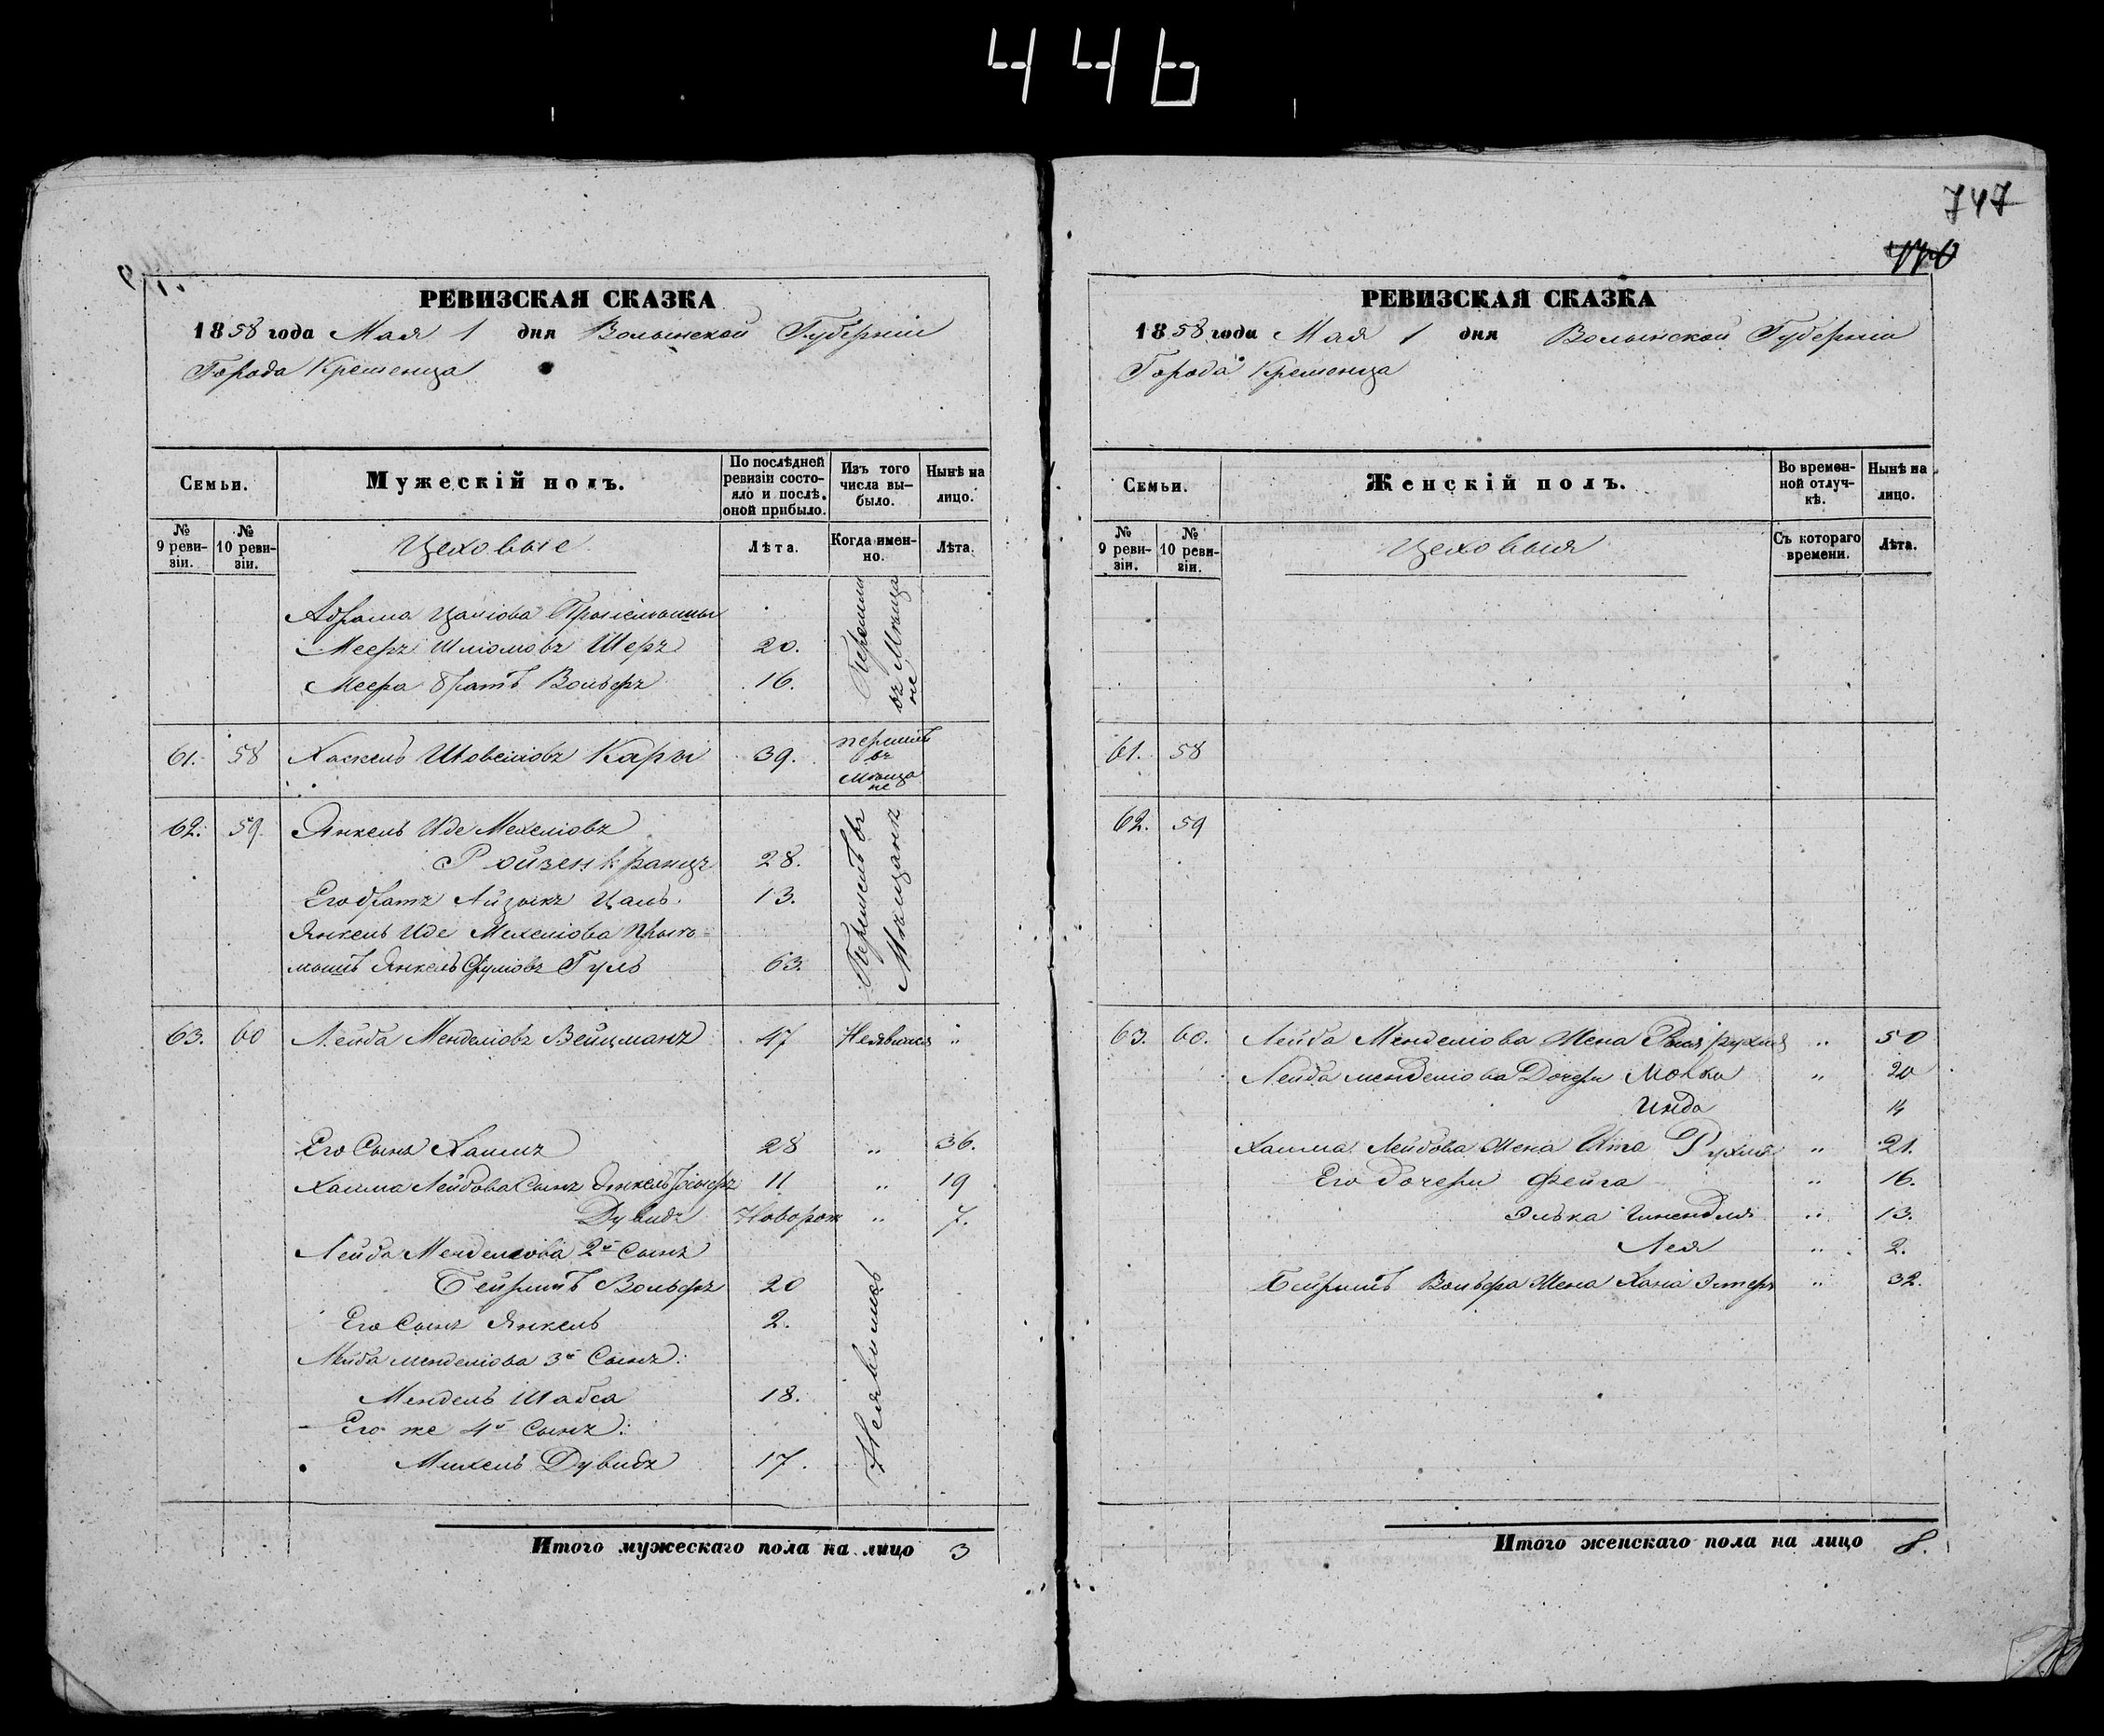 446
747
РЕВИЗСКАЯ СКАЗКА
1858 года Мая 1 дня Волынской Губерніи
Города Кременца
Семьи.
Мужескій полъ.
По послѣдней ревизіи состояло и послѣ оной прибыло.
Изъ того числа выбыло.
Нынѣ на лицо.
№ 9 ревизіи.
№ 10 ревизіи.
Цеховые
Лѣта.
Когда именно.
Лѣта.
Абрама Цаліова
Мееръ Шліомовъ Шеръ 20.
Меера братъ Вольфъ 16.
61. 58 Хаскель Иовеліовъ Кары 39. перешелъ въ Мѣщане
62. 59 Янкель Иде Мехеліовъ
Ройзенкранцъ 28. Перешелъ въ Мѣщане
Его братъ Айзыкъ Цаль 13.
Янкель Иде Мехеліова
Янкель Сруліовъ Гуль 63.
63. 60 Лейба Менделіовъ Вейцманъ 47 Неявился "
Его Сынъ Хаимъ 28 " 36.
Хаима Лейбова Сынъ Янкель 11 " 19
Дувидъ Новорож " 7.
Лейба Менделіова 2й Сынъ
Бейришъ Вольфъ 20
Его Сынъ Янкель 2.
Лейба Менделіова 3й Сынъ:
Мендель Шабса 18. Неявились
Его же 4й Сынъ:
Михель Дувидъ 17.
Итого мужескаго пола на лицо 3
РЕВИЗСКАЯ СКАЗКА
1858 года Мая 1 дня Волынской Губерніи
Города Кременца
Семьи.
Женскій полъ.
Во временной отлучкѣ.
Нынѣ на лицо.
№ 9 ревизіи.
№ 10 ревизіи.
Цеховыя
Съ котораго времени.
Лѣта.
61. 58
62. 59
63. 60. Лейба Менделіова Жена Рухля " 50
Лейба Менделіова Дочери " 20
Инда 14
Хаима Лейбова Жена Ита Рухля " 21.
Его дочери Фейга " 16.
Элька " 13.
Лея " 2.
Бейришъ Вольфа Жена Хана Эстеръ " 32.
Итого женскаго пола на лицо 8.